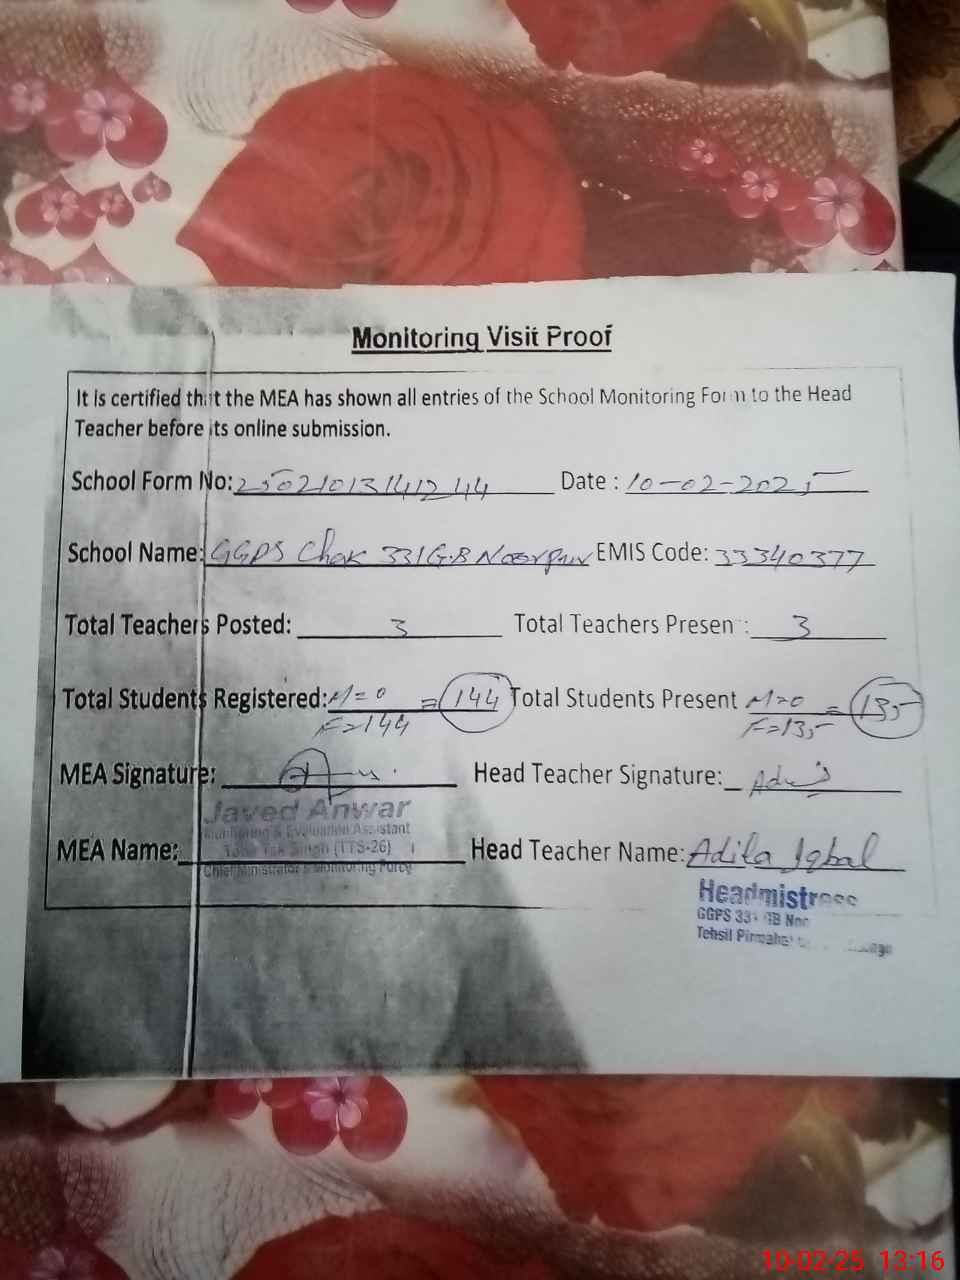 Monitoring Visit Proof
It is certified that the MEA has shown all entries of the School Monitoring Form to the Head
Teacher before its online submission.
School Form No: 25021013141244 Date : 10-02-2025
School Name: GGPS Chak 331 G.B Noorpur EMIS Code: 33340377
Total Teachers Posted: 3 Total Teachers Presen : 3
Total Students Registered: M=0 = 144 Total Students Present M=0 = 135
F=144 F=135
MEA Signature: Head Teacher Signature:
Javed Anwar
Monitoring & Evaluation Assistant
Toba Tek Singh (TTS-26)
MEA Name: Head Teacher Name: Adila Iqbal
Chief Ministrator's Monitoring Force
Headmistress
GGPS 331 GB
Tehsil
10-02-25 13:16